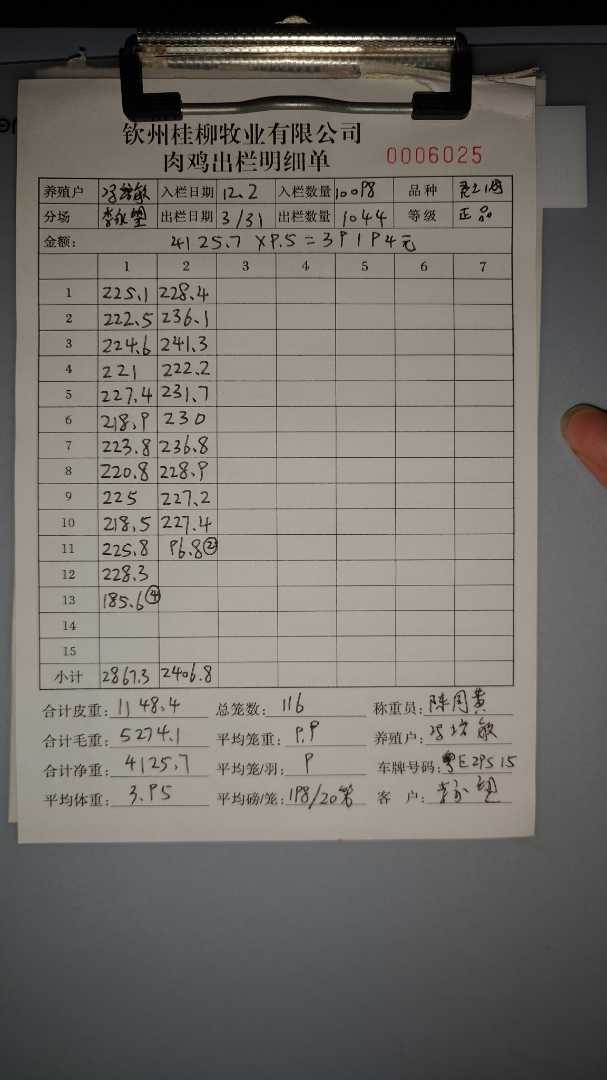 钦州桂柳牧业有限公司
肉鸡出栏明细单 0006025
养殖户 冯培敏 入栏日期 12.2 入栏数量 10098 品种
分场 出栏日期 3/31 出栏数量 1044 等级 正品
金额: 4125.7 X9.5=39194元
1 2 3 4 5 6 7
1 225.1 228.4
2 222.5 236.1
3 224.6 241.3
4 221 222.2
5 227.4 231.7
6 218.9 230
7 223.8 236.8
8 220.8 228.9
9 225 227.2
10 218.5 227.4
11 225.8 96.8②
12 228.3
13 185.6④
14
15
小计 2867.3 2406.8
合计皮重: 1148.4 总笼数: 116 称重员: 陈周黄
合计毛重: 5274.1 平均笼重: 9.9 养殖户: 冯培敏
合计净重: 4125.7 平均笼/羽: 9 车牌号码: 粤E29S15
平均体重: 3.95 平均磅/笼: 198/20 客 户: